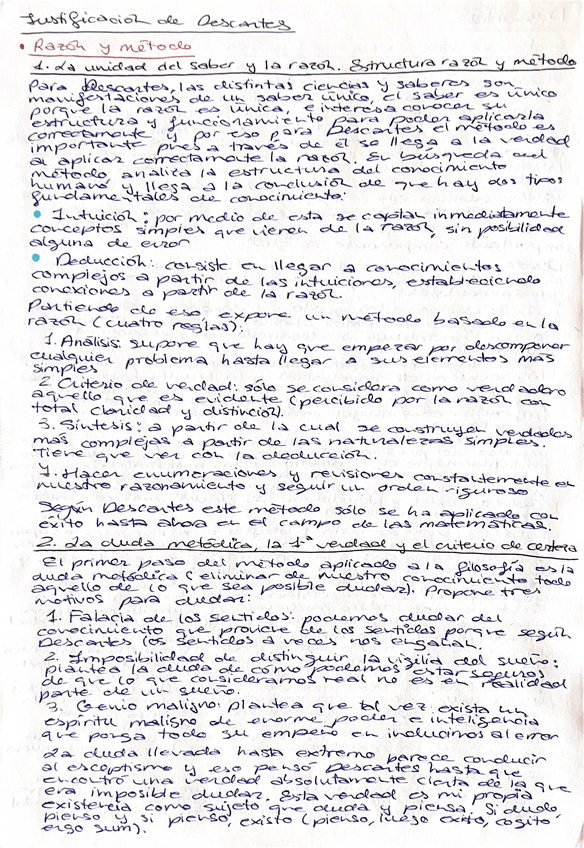 Justificación de Descartes
• Razón y método
1. La unidad del saber y la razón. Estructura razón y método
Para Descartes, las distintas ciencias y saberes son
manifestaciones de un saber único, el saber es único
porque la razón es única e interesa conocer su
estructura y funcionamiento para poder aplicarla
correctamente y por eso para Descartes el método es
importante pues a través de él se llega a la verdad
al aplicar correctamente la razón. En búsqueda del
método, analiza la estructura del conocimiento
humano y llega a la conclusión de que hay dos tipos
fundamentales de conocimiento:
• Intuición: por medio de esta se captan inmediatamente
conceptos simples que vienen de la razón, sin posibilidad
alguna de error
• Deducción: consiste en llegar a conocimientos
complejos a partir de las intuiciones, estableciendo
conexiones a partir de la razón.
Partiendo de eso, expone un método basado en la
razón (cuatro reglas):
1. Análisis: supone que hay que empezar por descomponer
cualquier problema hasta llegar a sus elementos más
simples
2. Criterio de verdad: sólo se considera como verdadero
aquello que es evidente (percibido por la razón con
total claridad y distinción).
3. Síntesis: a partir de la cual se construyen verdades
mas complejas a partir de las naturalezas simples.
Tiene que ver con la deducción.
4. Hacer enumeraciones y revisiones constantemente en
nuestro razonamiento y seguir un orden riguroso
Según Descartes este método sólo se ha aplicado con
éxito hasta ahora en el campo de las matemáticas.
2. La duda metódica, la 1ª verdad y el criterio de certeza
El primer paso del método aplicado a la filosofía es la
duda metódica (eliminar de nuestro conocimiento todo
aquello de lo que sea posible dudar). Propone tres
motivos para dudar:
1. Falacia de los sentidos: podemos dudar del
conocimiento que proviene de los sentidos porque según
Descartes los sentidos a veces nos engañan.
2. Imposibilidad de distinguir la vigilia del sueño:
plantea la duda de cómo podemos estar seguros
de que lo que consideramos real no es en realidad
parte de un sueño.
3. Genio maligno: plantea que tal vez exista un
espíritu maligno de enorme poder e inteligencia
que ponga todo su empeño en inducirnos al error
La duda llevada hasta extremo parece conducir
al escepticismo y eso pensó Descartes hasta que
encontró una verdad absolutamente cierta de la que
era imposible dudar. Esta verdad es mi propia
existencia como sujeto que duda y piensa. Si dudo,
pienso y si pienso, existo (pienso, luego existo, cogito
ergo sum).